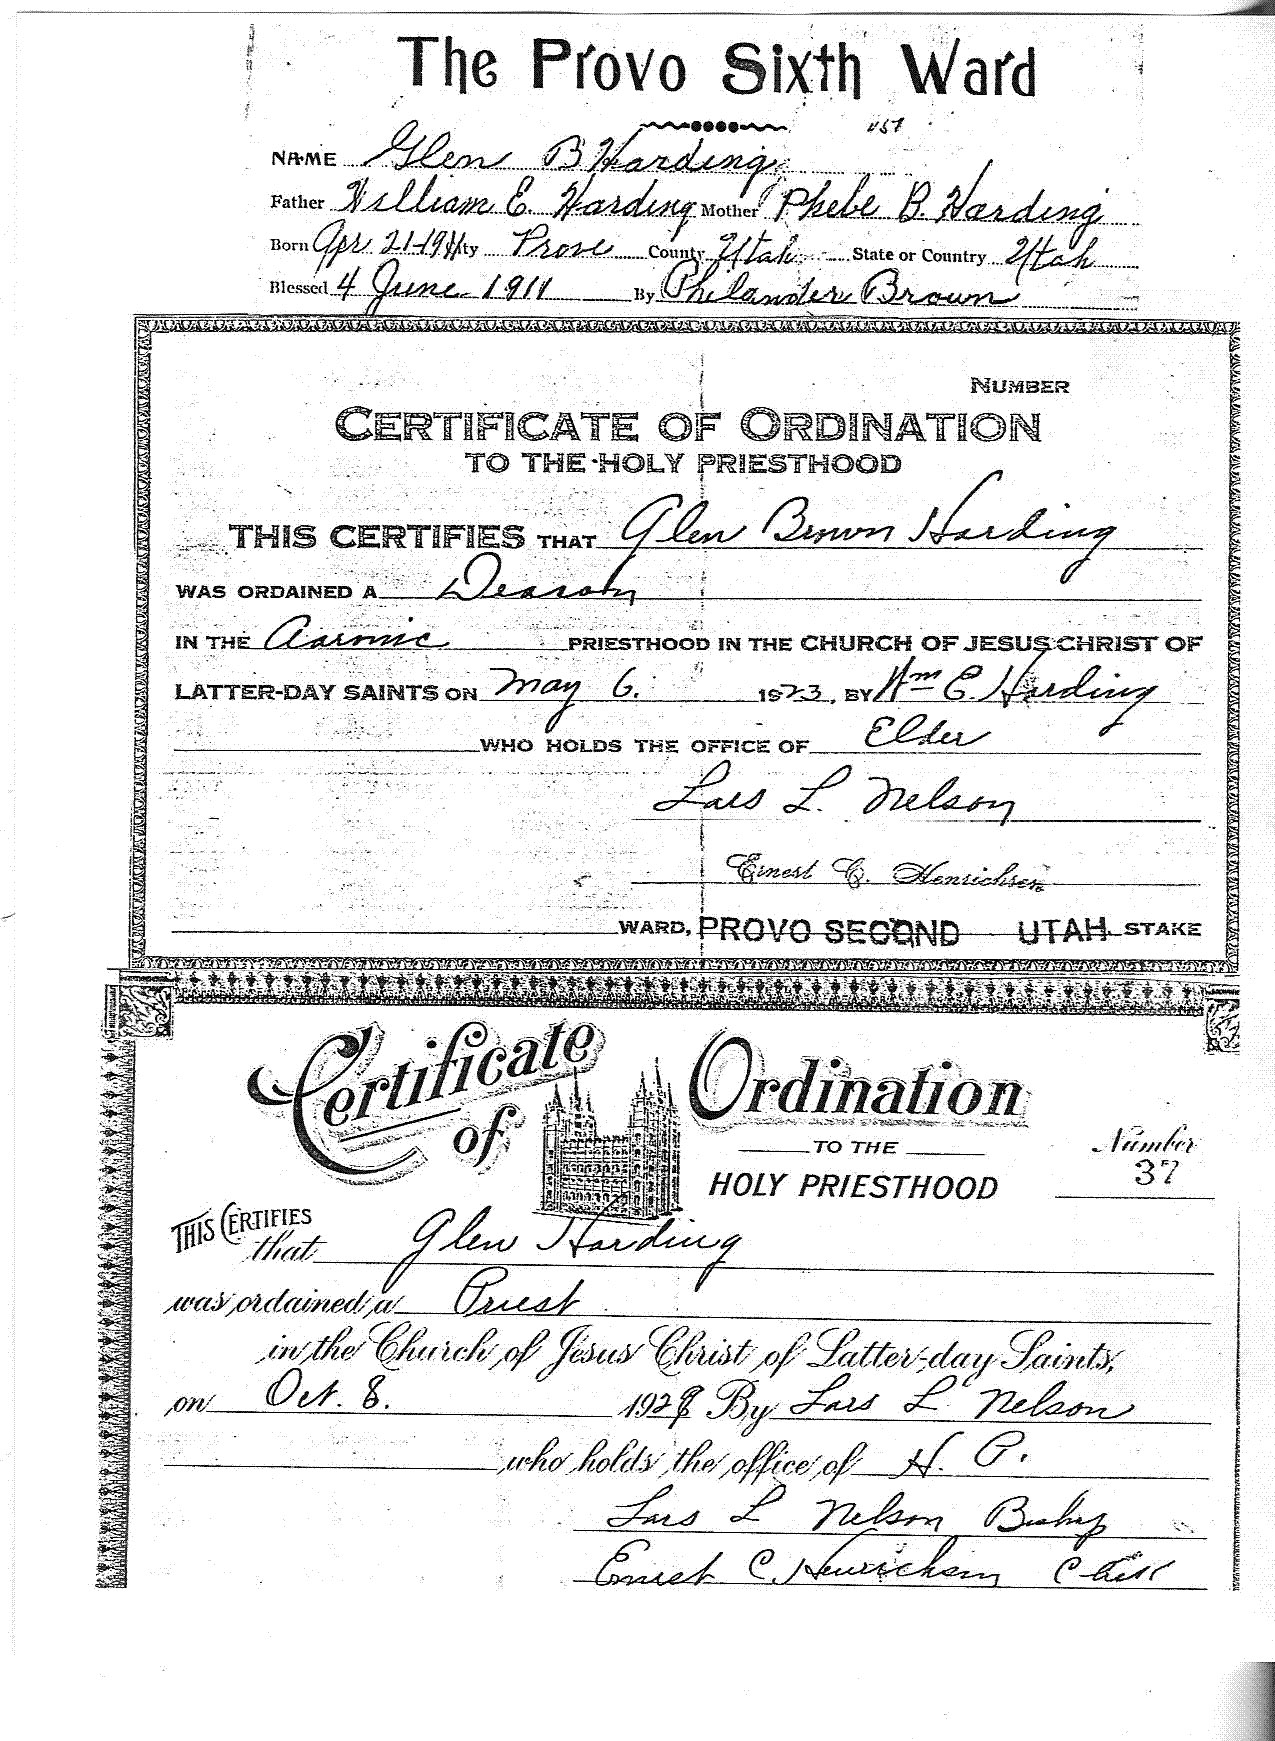 The Provo Sixth Ward
NAME Glen B Harding
Father William E. Harding Mother Phebe B. Harding
Born Apr. 21-1911 City Provo County Utah State or Country Utah
Blessed 4 June 1911 By Philander Brown
NUMBER
CERTIFICATE OF ORDINATION
TO THE HOLY PRIESTHOOD
THIS CERTIFIES THAT Glen Brown Harding
WAS ORDAINED A Deacon
IN THE Aaronic PRIESTHOOD IN THE CHURCH OF JESUS CHRIST OF
LATTER-DAY SAINTS ON May 6. 1923, BY Wm E. Harding
WHO HOLDS THE OFFICE OF Elder
Lars L. Nelson
Ernest C. Henrichsen
WARD, PROVO SECOND UTAH STAKE
Certificate of Ordination
TO THE
HOLY PRIESTHOOD
Number
37
THIS CERTIFIES
that Glen Harding
was ordained a Priest
in the Church of Jesus Christ of Latter-day Saints,
on Oct. 8. By Lars L. Nelson
who holds the office of H. P.
Lars L Nelson Bishop
Ernest C. Henrichsen Clerk